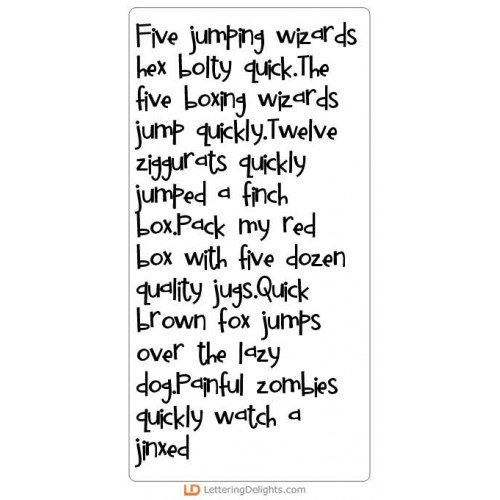 Five jumping wizards
hex bolty quick.The
five boxing wizards
jump quickly.Twelve
ziggurats quickly
jumped a finch
box.Pack my red
box with five dozen
quality jugs.Quick
brown fox jumps
over the lazy
dog.Painful zombies
quickly watch a
jinxed
LD LetteringDelights.com